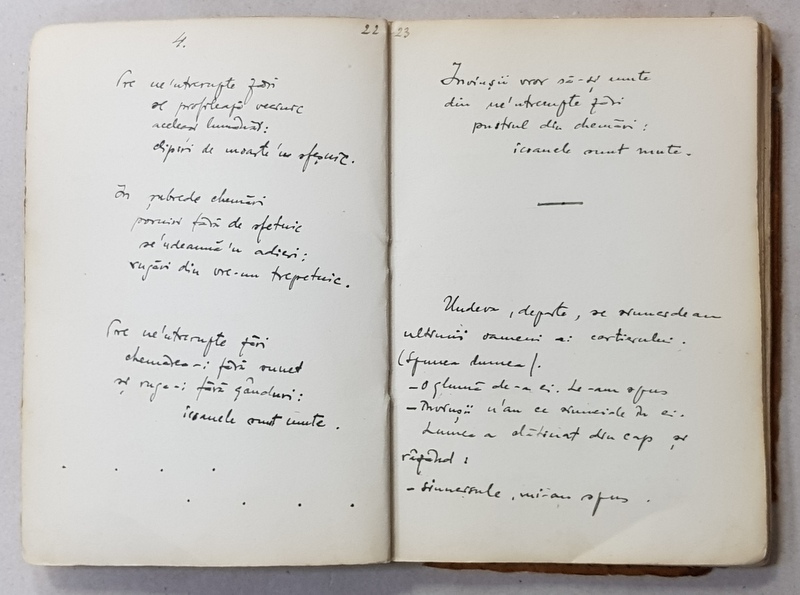 4.
22
Pre ne'ntrerupte zări
se profilează vecinic
aceleași lumânări:
clipiri de moarte'n sfeșnic.
În rebede chemări
porniri fără de sfetnic
se'ndeamnă'n adieri:
rugări din vre-un trepetnic.
Pre ne'ntrerupte zări
chemarea-i fără sunet
și ruga-i fără gânduri:
icoanele sunt mute.
. . . .
. . . .
23
Învinșii vror să-și mute
din ne'ntrerupte zări
pustiul din chemări:
icoanele sunt mute.
Undeva, departe, se sinucideau
ultimii oameni ai cartierului.
(Spunea lumea).
- O glumă de-a ei. Le-am spus
- Învinșii n'au ce sinucide în ei.
Lumea a clătinat din cap și
râzând:
- , mi-au spus.